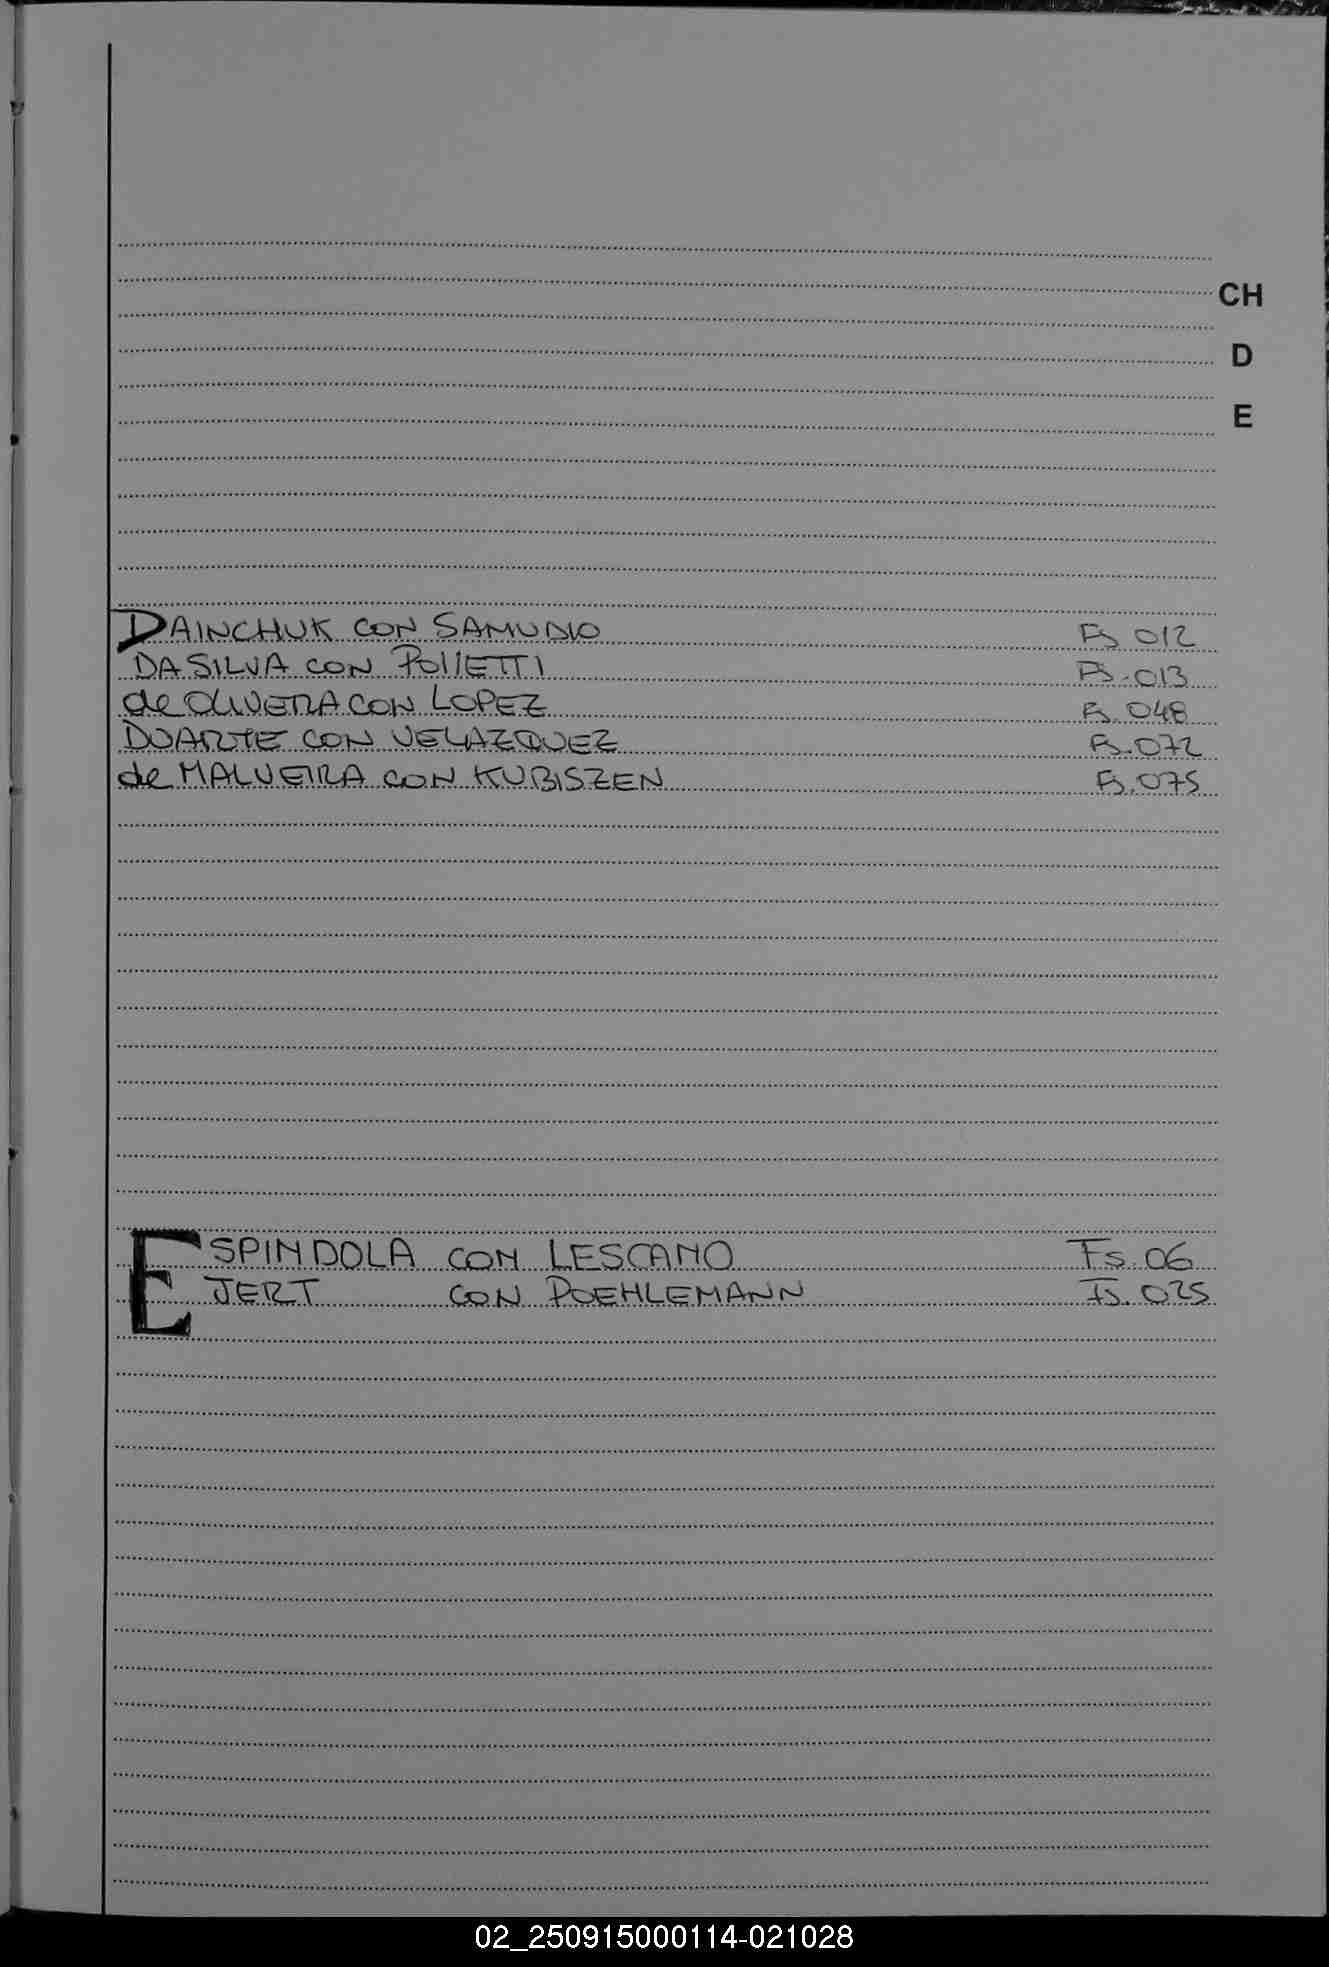 CH
D
E
DAINCHUK CON SAMUDIO Fs 012
DA SILVA CON POLLETTI Fs. 013
de OLIVERA CON LOPEZ Fs. 048
DUARTE CON VELAZQUEZ Fs. 072
de MALVEIRA CON KUBISZEN Fs. 075
ESPINDOLA CON LESCANO Fs. 06
EJERT CON POEHLEMANN Fs. 025
02_250915000114-021028